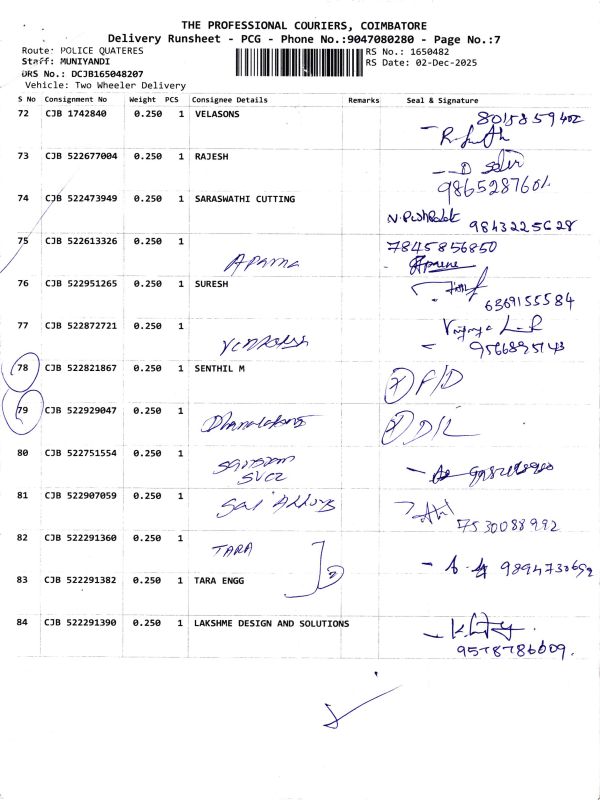 THE PROFESSIONAL COURIERS, COIMBATORE
Delivery Runsheet - PCG - Phone No.:9047080280 - Page No.:7
Route: POLICE QUATERES
RS No.: 1650482
Staff: MUNIYANDI
RS Date: 02-Dec-2025
DRS No.: DCJB165048207
Vehicle: Two Wheeler Delivery
S No Consignment No Weight PCS Consignee Details Remarks Seal & Signature
72 CJB 1742840 0.250 1 VELASONS
8015859402
73 CJB 522677004 0.250 1 RAJESH
9865287601
74 CJB 522473949 0.250 1 SARASWATHI CUTTING
9843225628
75 CJB 522613326 0.250 1 Aparna
7845856850
76 CJB 522951265 0.250 1 SURESH
6369155584
77 CJB 522872721 0.250 1
78 CJB 522821867 0.250 1 SENTHIL M
79 CJB 522929047 0.250 1
D/L
80 CJB 522751554 0.250 1
81 CJB 522907059 0.250 1 Sai
7530088992
82 CJB 522291360 0.250 1 TARA
2
83 CJB 522291382 0.250 1 TARA ENGG
84 CJB 522291390 0.250 1 LAKSHME DESIGN AND SOLUTIONS
9578786009.